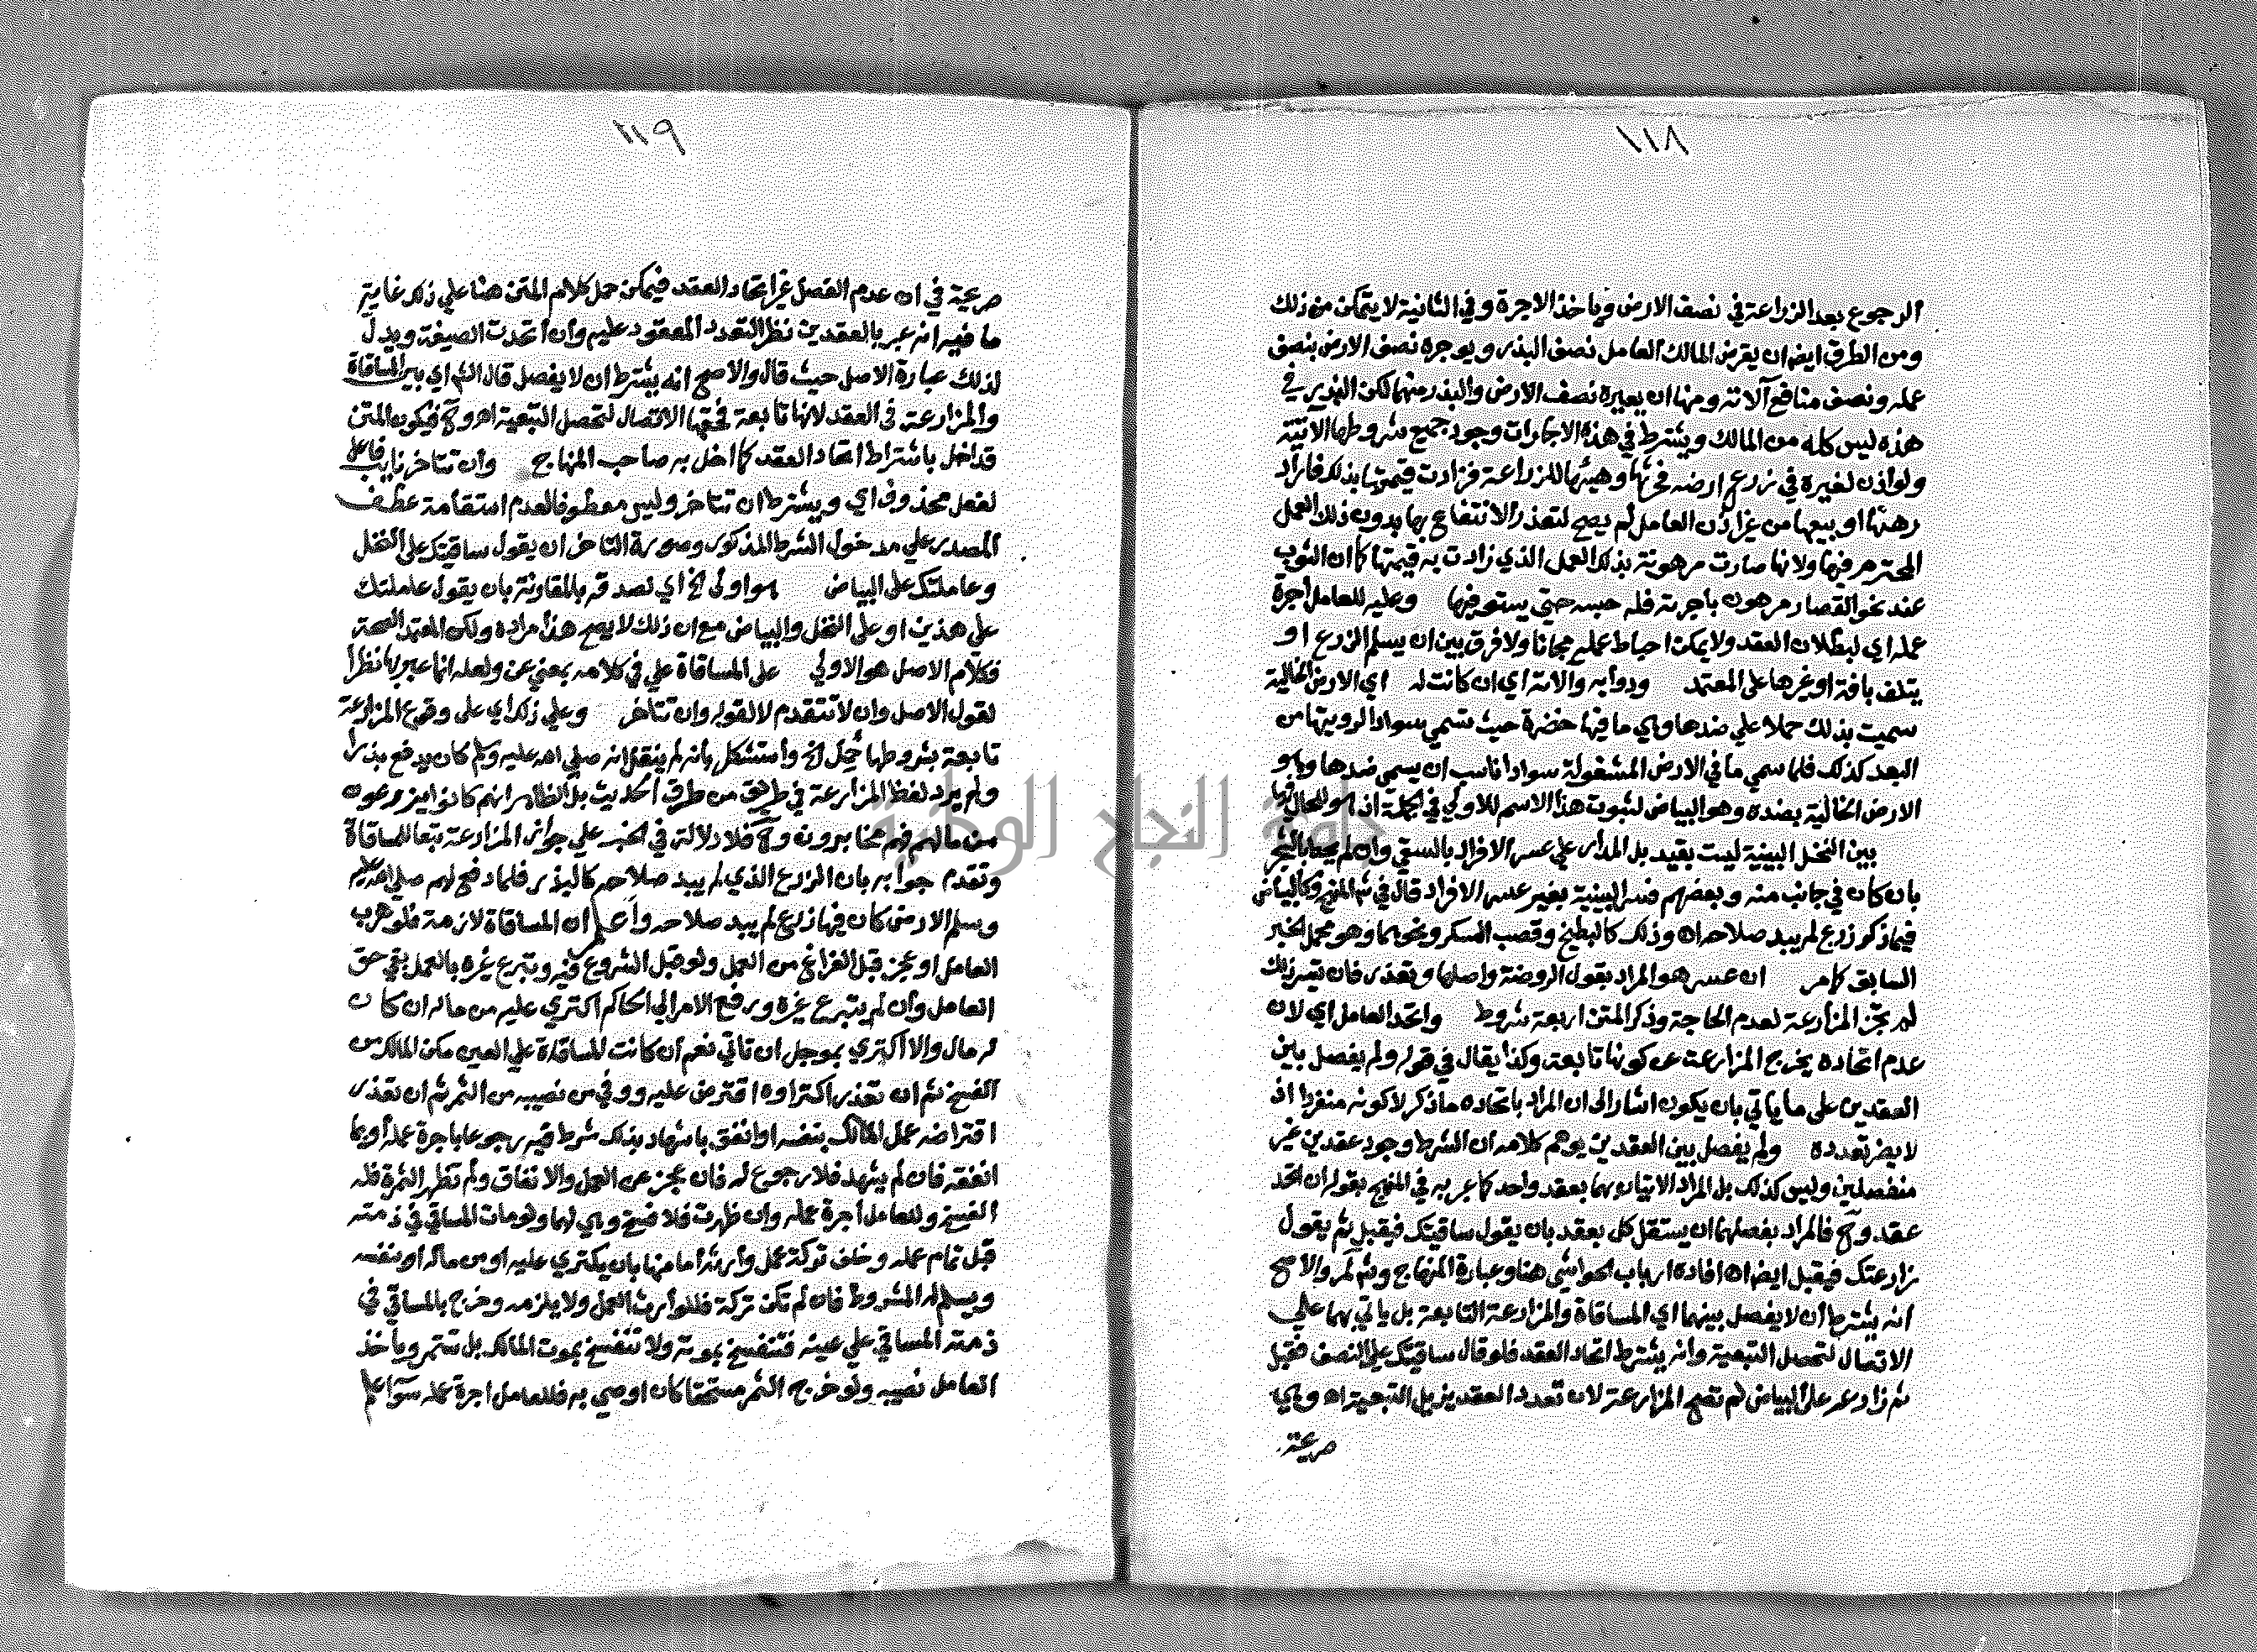 ١١٨
الرجوع بعد الزراعة في نصف الارض وياخذ الاجرة وفي الثانية لا يتمكن من ذلك
ومن الطرق ايضا ان يقرض المالك العامل نصف البذر ويوجره نصف الارض بنصف
عمله ونصف منافع آلاته ومنها ان يعيره نصف الارض والبذر منهما لكن البذر في
هذه ليس كله من المالك ويشترط في هذه الاجارات وجود جميع شروطها الاتية
ولو اذن لغيره في زرع ارضه فحرثها وهيئها للزراعة فزادت قيمتها بذلك فاراد
رهنها او بيعها من غير اذن العامل لم يصح لتعذر الانتفاع بها بدون ذلك العمل
المحترم فيها ولانها صارت مرهونة بذلك العمل الذي زادت به قيمتها كما ان الثوب
عند نحو القصار مرهون باجرته فله حبسه حتى يستوفيها وعليه للعامل أجرة
عمله اي لبطلان العقد ولا يمكن احباط عمله مجانا ولا فرق بين ان يسلم الزرع او
يتلف بافة او غيرها على المعتمد ودوابه والاته اي ان كانت له اي الارض الخالية
سميت بذلك حملا علي ضدها وهي ما فيها خضرة حيث تسمي سوادا لرويتها من
البعد كذلك فلما سمي ما في الارض المشغولة سوادا ناسب ان يسمى ضدها وهو
الارض الخالية بضده وهو البياض لثبوت هذا الاسم للاولي في الجملة اذ هو للحال فيها
بين النخل البينية ليست بقيد بل المدار علي عسر الافراد بالسقي وان لم يحط بالشجر
بان كان في جانب منه وبعضهم فسر البينية بغير عسر الافراد قال في شرح المنهج وكالبياض
فيما ذكر زرع لم يبد صلاحه اه وذلك كالبطيخ وقصب السكر ونحوهما وهو محمل الخبر
السابق كما مر ان عسر هو المراد بقول الروضة واصلها وتعذر فان تيسر ذلك
لم تجز المزارعة لعدم الحاجة وذكر المتن اربعة شروط واتحد العامل اي لان
عدم اتحاده يخرج المزارعة عن كونها تابعة وكذا يقال في قوله ولم يفصل بين
العقدين على ما ياتي بان يكون اشار الى ان المراد باتحاده ما ذكر لا كونه منفردا اذ
لا يضر تعدده ولم يفصل بين العقدين يوهم كلامه ان الشرط وجود عقدين غير
منفصلين وليس كذلك بل المراد الاتيان بهما بعقد واحد كما عبر به في المنهج بقوله ان اتحد
عقد وح فالمراد بفصلهما ان يستقل كل بعقد بان يقول ساقيتك فيقبل ثم يقول
زارعتك فيقبل ايضا اه افاده ارباب الحواشي هنا وعبارة المنهاج وشرح م ر والاصح
انه يشترط أن لا يفصل بينهما اي المساقاة والمزارعة التابعة بل ياتي بهما علي
الاتصال لتحصل التبعية وانه يشترط اتحاد العقد فلو قال ساقيتك علي النصف فقبل
ثم زارعه على البياض لم تصح المزارعة لان تعدد العقد يزيل التبعية اه وهي
صريحة
١١٩
صريحة في ان عدم الفصل غير اتحاد العقد فيمكن حمل كلام المتن هنا علي ذلك غاية
ما فيه انه عبر بالعقدين نظرا لتعدد المعقود عليه وان اتحدت الصيغة ويدل
لذلك عبارة الاصل حيث قال والاصح انه يشترط ان لا يفصل قال الشارح اي بين المساقاة
والمزارعة في العقد لانها تابعة فحقها الاتصال لتحصل التبعية اه وح فيكون المتن
قد اخل باشتراط اتحاد العقد كما اخل به صاحب المنهاج وان تتاخر نايب فاعل
لفعل محذوف اي ويشترط ان تتاخر وليس معطوفا لعدم استقامة عطف
المصدر علي مدخول الشرط المذكور وصورة التاخر ان يقول ساقيتك على النخل
وعاملتك على البياض هو اولى الخ اي لصدقه بالمقارنة بان يقول عاملتك
علي هذين او على النخل والبياض مع ان ذلك لا يصح هذا مراده ولكن المعتمد الصحة
فكلام الاصل هو الاولي على المساقاة علي في كلامه بمعني عن ولعله انما عبر بها نظرا
لقول الاصل وان لا تتقدم لا لقوله وان تتاخر وعلي ذلك اي على وقوع المزارعة
تابعة بشروطها حمل الخ واستشكل بانه لم ينقل انه صلي الله عليه وسلم كان يدفع بذرا
ولم يرد لفظ المزارعة في طريق من طرق الحديث بل الظاهر انهم كانوا يزرعون
من مالهم فهم مخابرون وح فلا دلالة في الخبر علي جواز المزارعة تبعا للمساقاة
وتقدم جوابه بان الزرع الذي لم يبد صلاحه كالبذر فلما دفع لهم صلي الله عليه
وسلم الارض كان فيها زرع لم يبد صلاحه واعلم ان المساقاة لازمة فلو هرب
العامل او عجز قبل الفراغ من العمل ولو قبل الشروع فيه وتبرع غيره بالعمل بقي حق
العامل وان لم يتبرع غيره ورفع الامر الي الحاكم اكتري عليه من ماله ان كان
له مال والا اكتري بموجل ان تاتي نعم ان كانت المساقاة علي العين مكن المالك من
الفسخ ثم ان تعذر اكتراوه اقترض عليه ووفي من نصيبه من الثمر ثم ان تعذر
اقتراضه عمل المالك بنفسه او انفق باشهاد بذلك شرط فيه رجوعا باجرة عمله او بما
انفقه فان لم يشهد فلا رجوع له فان عجز عن العمل والانفاق ولم تظهر الثمرة فله
الفسخ وللعامل أجرة عمله وان ظهرت فلا فسخ وهي لهما ولو مات المساقي في ذمته
قبل تمام عمله وخلف تركة عمل وارثه اما منها بان يكتري عليه او من ماله او بنفسه
ويسلم له المشروط فان لم تكن تركة فللوارث العمل ولا يلزمه وخرج بالمساقي في
ذمته المساقي علي عينه فتنفسخ بموته ولا تنفسخ بموت المالك بل تستمر وياخذ
العامل نصيبه ولو خرج الثمر مستحقا كان اوصي به فللعامل اجرة عمله سوآ علم
جامعة النجاح الوطنية